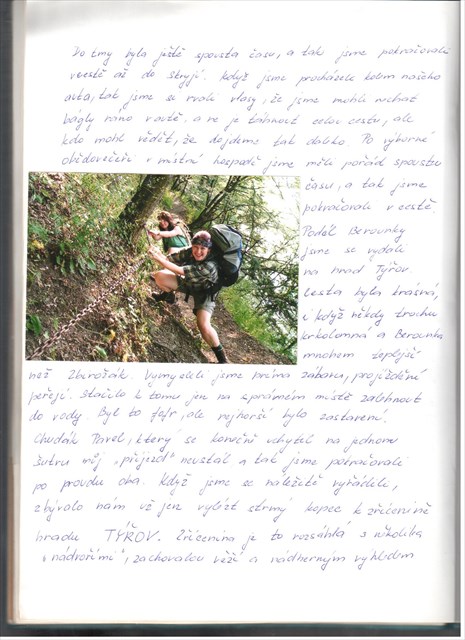 Do tmy byla ještě spousta času, a tak jsme pokračovali
v cestě až do Skryjí. Když jsme procházele kolem našeho
auta, tak jsme si rvali vlasy, že jsme mohli nechat
bágly ráno v autě, a ne je táhnout celou cestu, ale
kdo mohl vědět, že dojdeme tak daleko. Po výborné
obědovečeři v místní hospodě jsme měli pořád spoustu
času, a tak jsme
pokračovali v cestě
Podél Berounky
jsme se vydali
na hrad Týřov.
Cesta byla krásná,
i když někdy trochu
krkolomná a Berounka
mnohem teplejší
než Zbirožák. Vymysleli jsme prima zábavu, projíždění
peřejí. Stačilo k tomu jen na správném místě zalehnout
do vody. Byl to fofr, ale nejhorší bylo zastavení.
Chudák Pavel, který se konečně uchytil na jednom
šutru můj „příjezd" neustál, a tak jsme pokračovali
po proudu oba. Když jsme se náležitě vyřádili,
zbývalo nám už jen vylézt strmý kopec k zřícenině
hradu TÝŘOV. Zřícenina je to rozsáhlá s několika
„nádvořími", zachovalou věží a nádherným výhledem